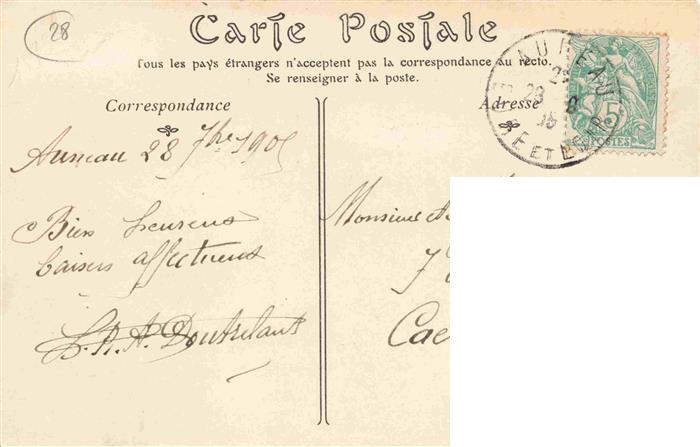 28
Carte Postale
Tous les pays étrangers n'acceptent pas la correspondance au recto.
Se renseigner à la poste.
Correspondance
Adresse
AUNEAU
28
EURE ET LOIR
5
POSTES
Auneau 28 7bre 1905
Bien heureux
baisers affectueux
Monsieur
Cae